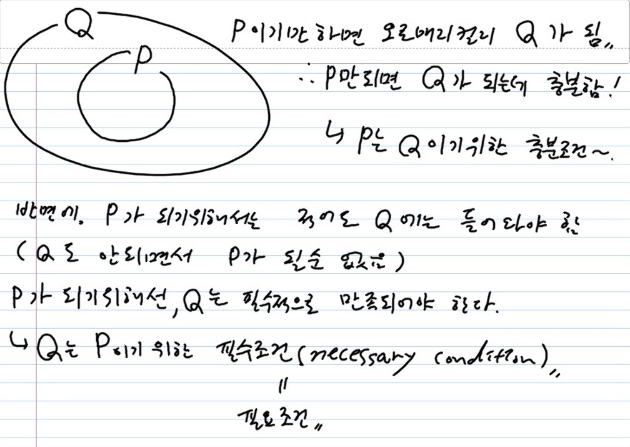 Q
P
P이기만 하면 오로매리컬리 Q가 됨,,
∴ P만되면 Q가 되는데 충분함!
↳ P는 Q이기위한 충분조건~.
반면에. P가 되기위해서는 적어도 Q에는 들어와야 함
(Q도 안되면서 P가 될순 없음)
P가 되기위해선, Q는 필수적으로 만족되어야 한다.
↳ Q는 P이기 위한 필수조건(necessary condition),,
=
필요조건,,